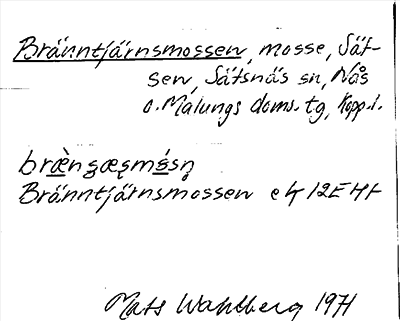 Bränntjärnsmossen, mosse, Sät-
sen, Sätsnäs sn, Nås
o. Malungs doms. tg, Kopp. l.
Bränntjärnsmossen ek 12E H f
Mats Wahlberg 1971